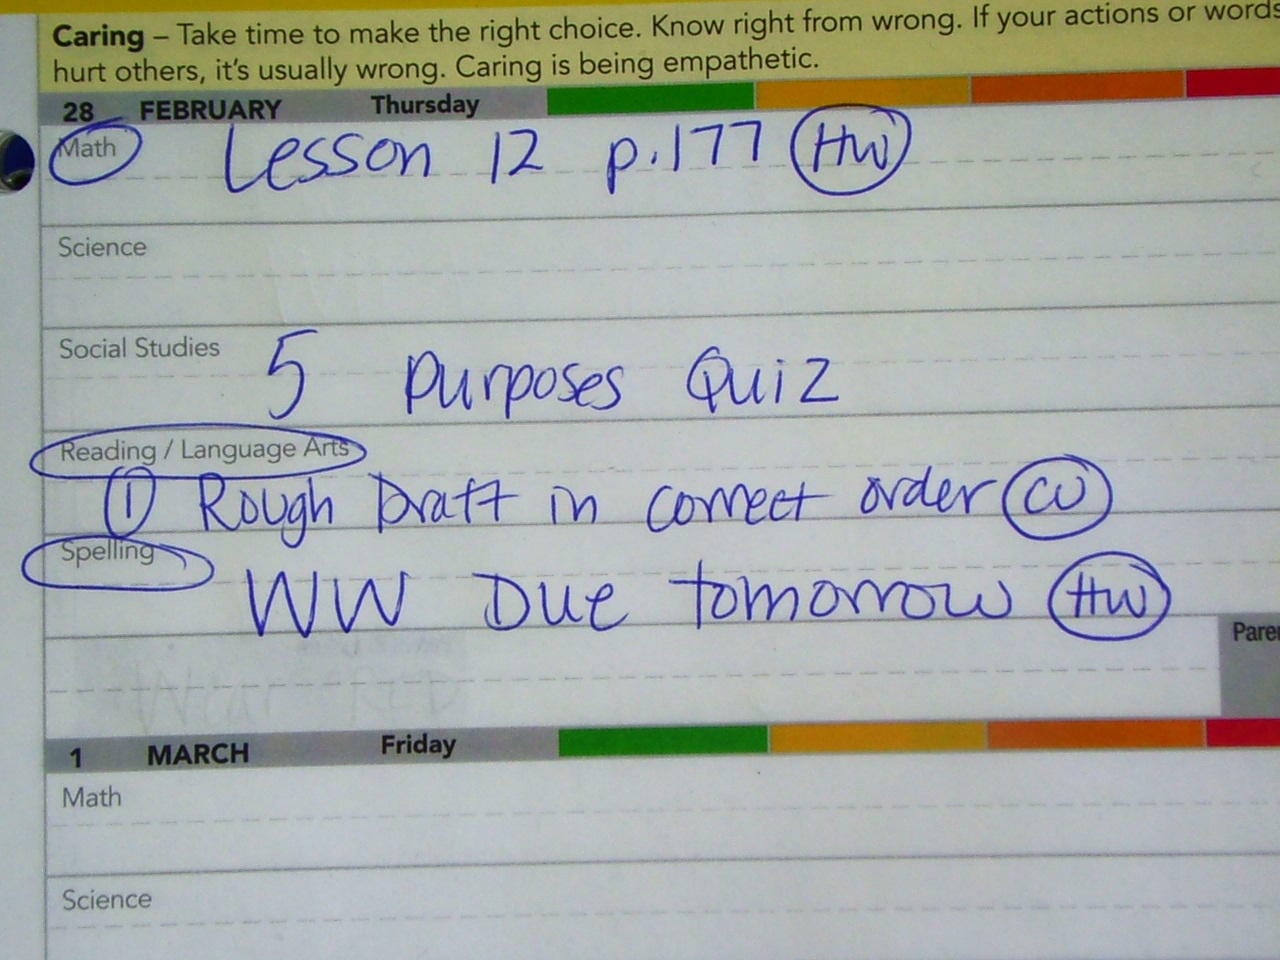 Caring – Take time to make the right choice. Know right from wrong. If your actions or words
hurt others, it's usually wrong. Caring is being empathetic.
28 FEBRUARY Thursday
Math Lesson 12 p.177 HW
Science
Social Studies 5 Purposes Quiz
Reading / Language Arts
1 Rough Draft in correct order CW
Spelling
WW Due tomorrow HW
1 MARCH Friday
Math
Science